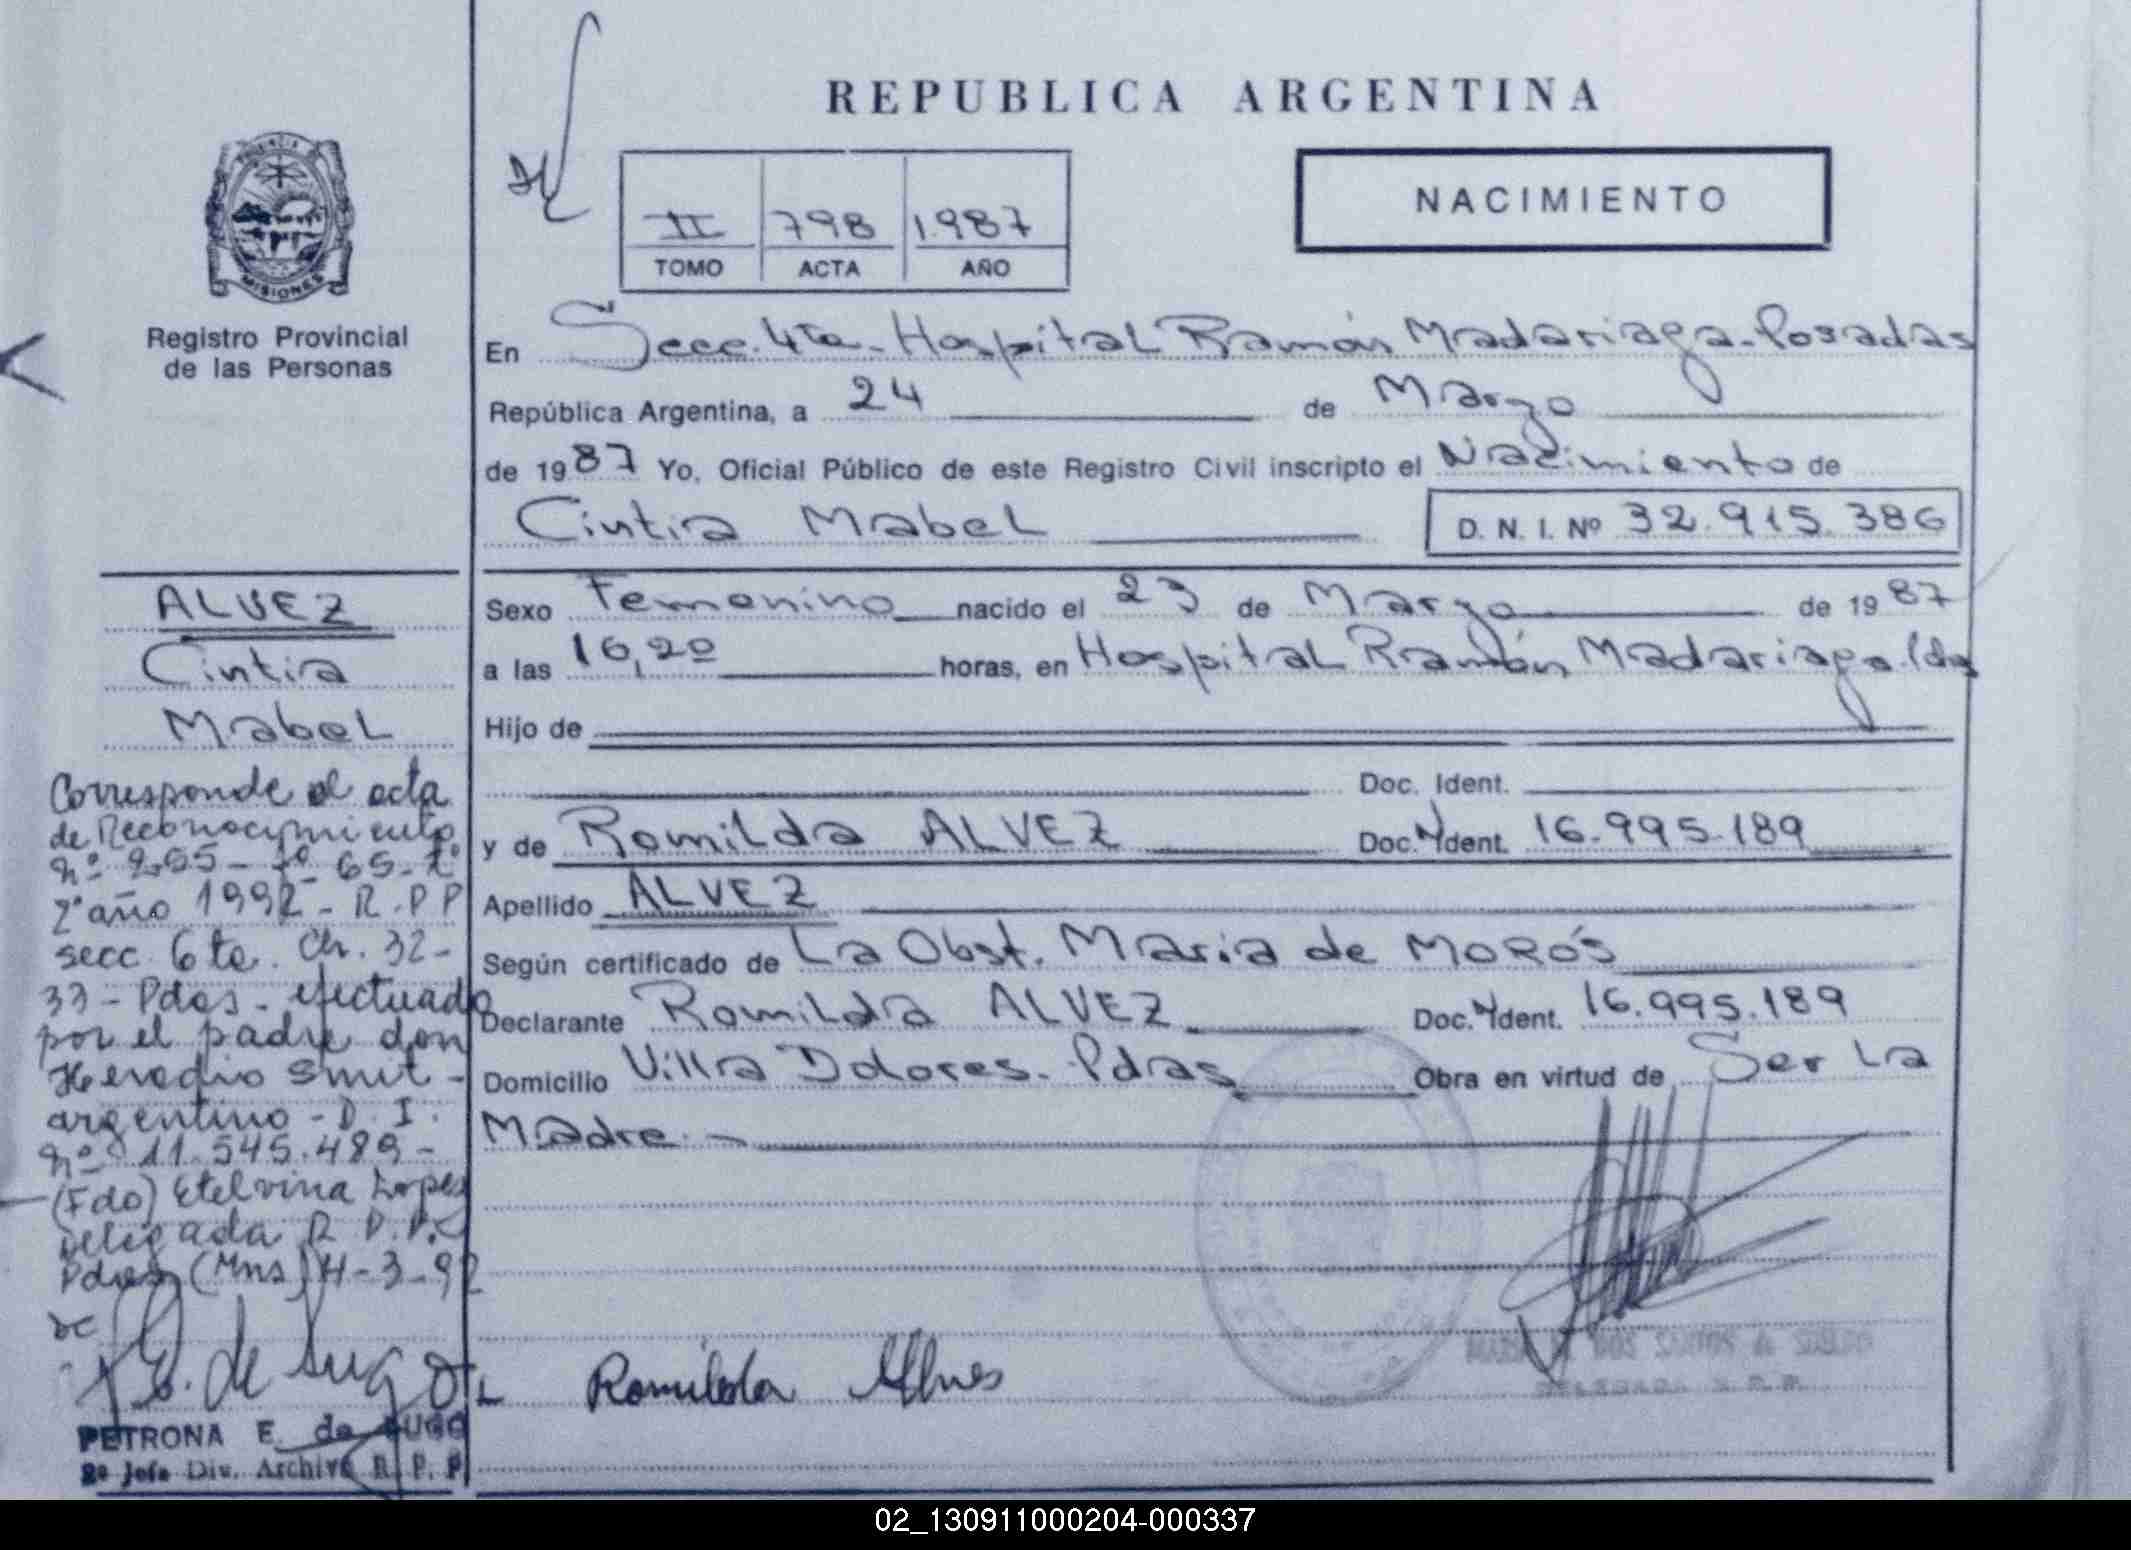 REPUBLICA ARGENTINA
NACIMIENTO
II 798 1.987
TOMO ACTA AÑO
MISIONES
Registro Provincial
de las Personas
En Secc. 4ta - Hospital Ramón Madariaga - Posadas
República Argentina, a 24 de Marzo
de 1987 Yo, Oficial Público de este Registro Civil inscripto el Nacimiento de
Cintia Mabel D. N. I. Nº 32.915.386
Sexo Femenino nacido el 23 de Marzo de 1987
a las 16,20 horas, en Hospital Ramón Madariaga. Pdas
Hijo de
Doc. Ident.
y de Romilda ALVEZ Doc. Ident. 16.995.189
Apellido ALVEZ
Según certificado de La Obst. Maria de MORÓS
Declarante Romilda ALVEZ Doc. Ident. 16.995.189
Domicilio Villa Dolores. Pdas Obra en virtud de Ser la
Madre. -
Romilda Alves
ALVEZ
Cintia
Mabel
Corresponde al acta
de Reconocimiento
nº 255 - fº 65 - tº
2º año 1992 - R.P.P
secc. 6ta. Ch. 32 -
33 - Pdas - efectuado
por el padre don
Heradio Smit -
argentino - D. I.
nº 11.545.489 -
(Fdo) Etelvina Lopez
Delegada R.P.P.
Pdas (Mns) 4-3-92
E. de Lugo
PETRONA E. de LUGO
2º Jefe Div. Archivo R. P. P.
02_130911000204-000337